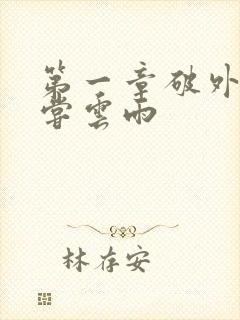 第一章破外
嘗雲雨
林存安